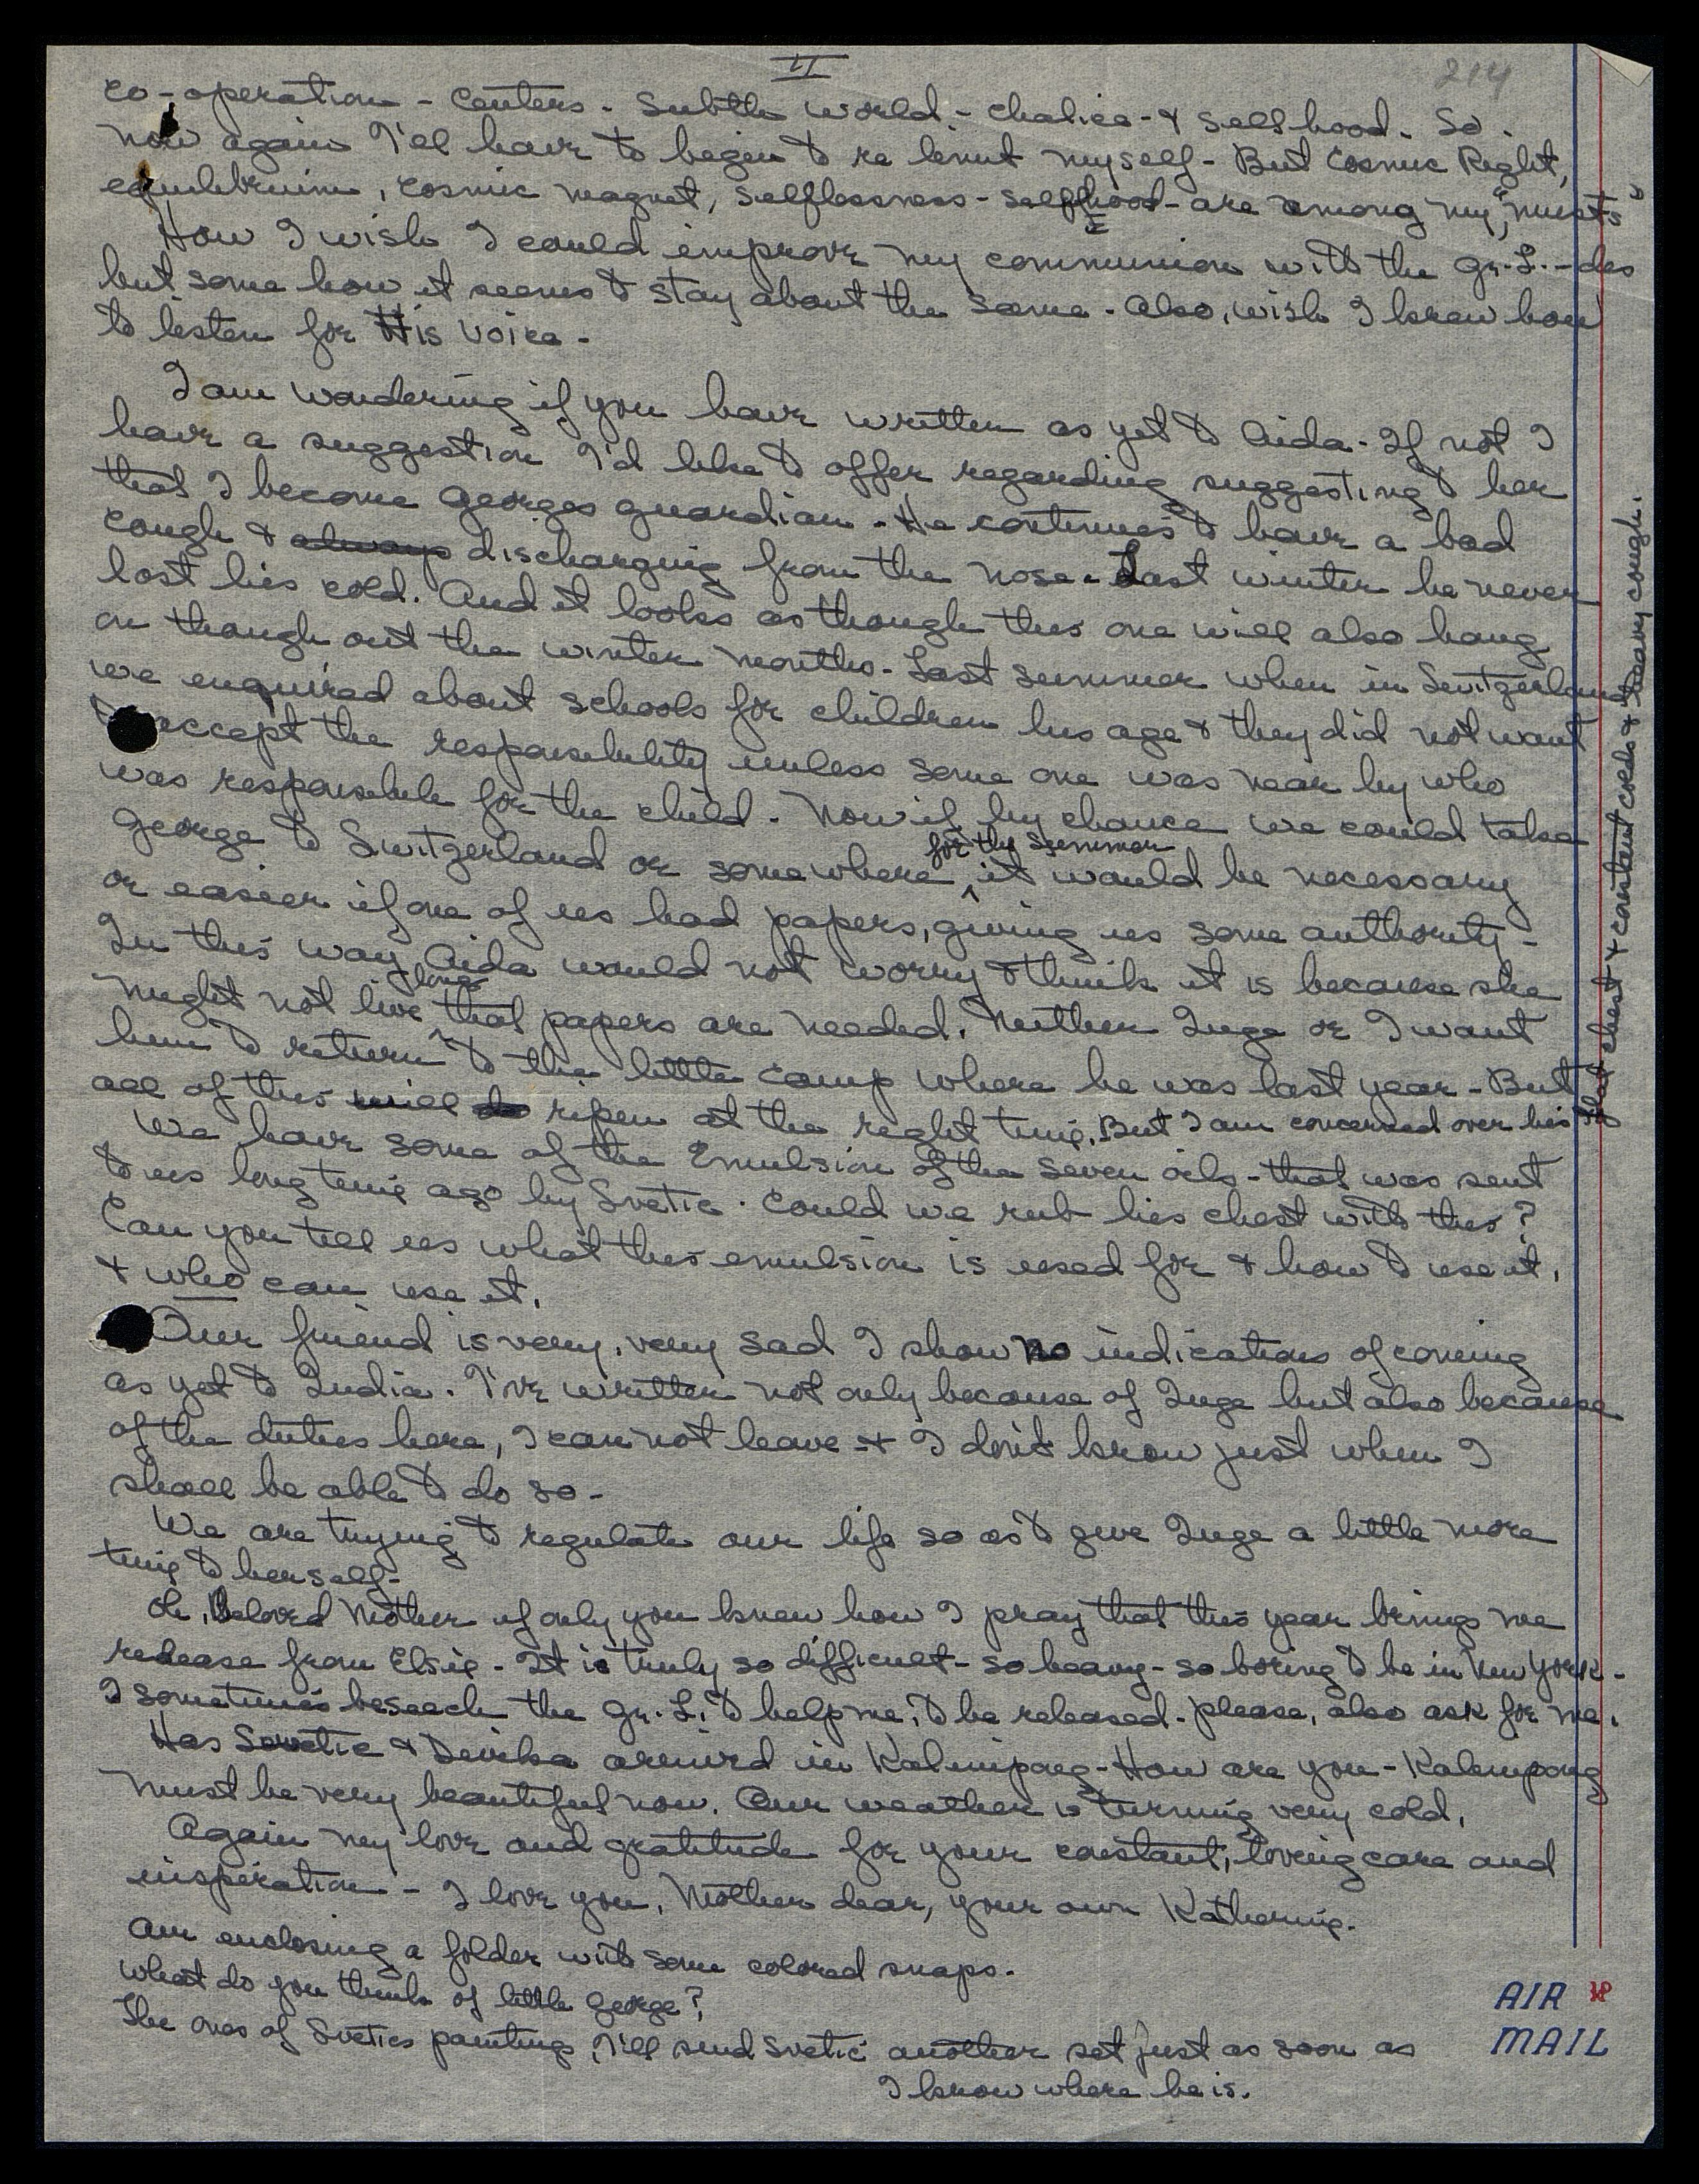 II
214
co-operation - Centers - Subtle World - Chalice - & Selfhood. So -
now again I'll have to begin to re limit myself - But Cosmic Right,
equilibrium, cosmic magnet, selflessness - selfhood - are among my "musts"
How I wish I could improve my communion with the Gr. L. - des
but some how it seems to stay about the same - Also, wish I knew how
to listen for His Voice -
I am wondering if you have written as yet to Aida - If not I
have a suggestion I'd like to offer regarding suggesting to her
that I become Georges guardian - He continues to have a bad
cough & always discharging from the nose - Last winter he never
lost his cold. And it looks as though this one will also hang
on though out the winter months - Last summer when in Switzerland
we enquired about schools for children his age & they did not want
to accept the responsibility unless some one was near by who
was responsible for the child - Now if by chance we could take
George to Switzerland or somewhere for the summer it would be necessary
or easier if one of us had papers, giving us some authority -
In this way Aida would not worry & think it is because she
might not live long that papers are needed. Neither Inge or I want
him to return to the little camp where he was last year - But
all of this will do ripen at the right time. But I am concerned over his
flat chest & constant colds & heavy cough.
We have some of the Emulsion of the seven oils - that was sent
to us long time ago by Svetic. Could we rub his chest with this?
Can you tell us what this emulsion is used for & how to use it,
& who can use it.
Our friend is very, very sad I show no indications of coming
as yet to India. I've written not only because of Inge but also because
of the duties here, I can not leave - & I don't know just when I
shall be able to do so -
We are trying to regulate our life so as to give Inge a little more
time to herself -
Oh, Beloved Mother if only you knew how I pray that this year brings me
release from Elsie - It is truly so difficult - so heavy - so boring to be in New York -
I sometimes beseech the Gr. L. to help me, to be released - please, also ask for me.
Has Svetic & Devika arrived in Kalimpong - How are you - Kalimpong
must be very beautiful now. Our weather is turning very cold.
Again my love and gratitude for your constant, loving care and
inspiration - I love you, Mother dear, your own Katherine.
Am enclosing a folder with some colored snaps.
What do you think of little George?
The ones of Svetics paintings, I'll send Svetic another set just as soon as
I know where he is.
AIR
MAIL